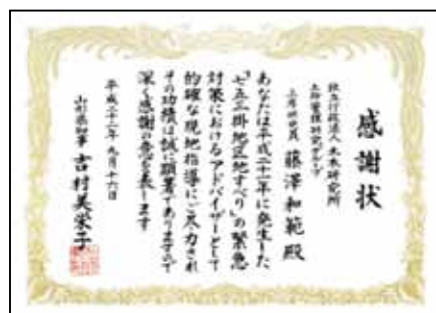 感謝状
独立行政法人 土木研究所
土砂管理研究グループ
上席研究員 藤澤和範 殿
あなたは平成二十一年に発生した
「七五三掛地区地すべり」の緊急
対策におけるアドバイザーとして
的確な現地指導にご尽力され
その功績は誠に顕著でありますので
深く感謝の意を表します
平成二十二年九月十六日
山形県知事 吉村美栄子